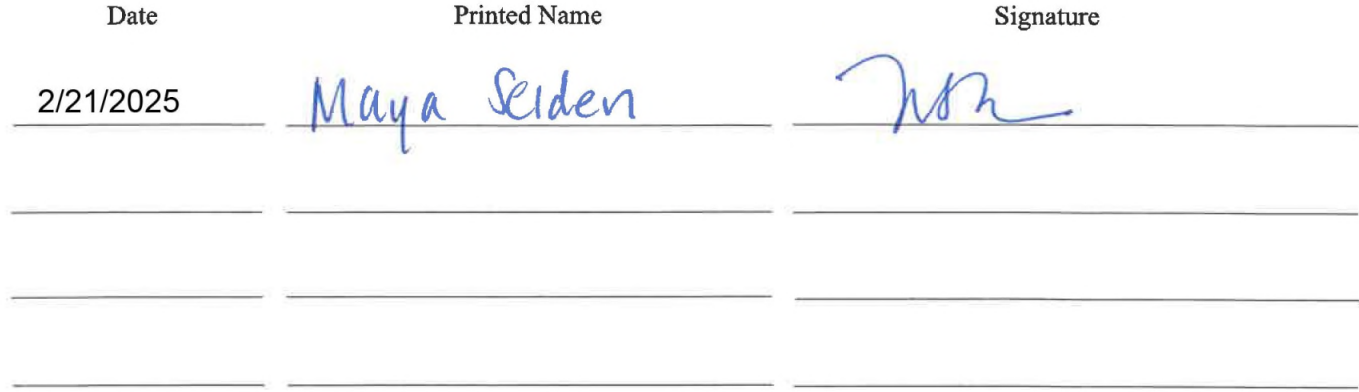 Date Printed Name Signature
2/21/2025 Maya Seiden